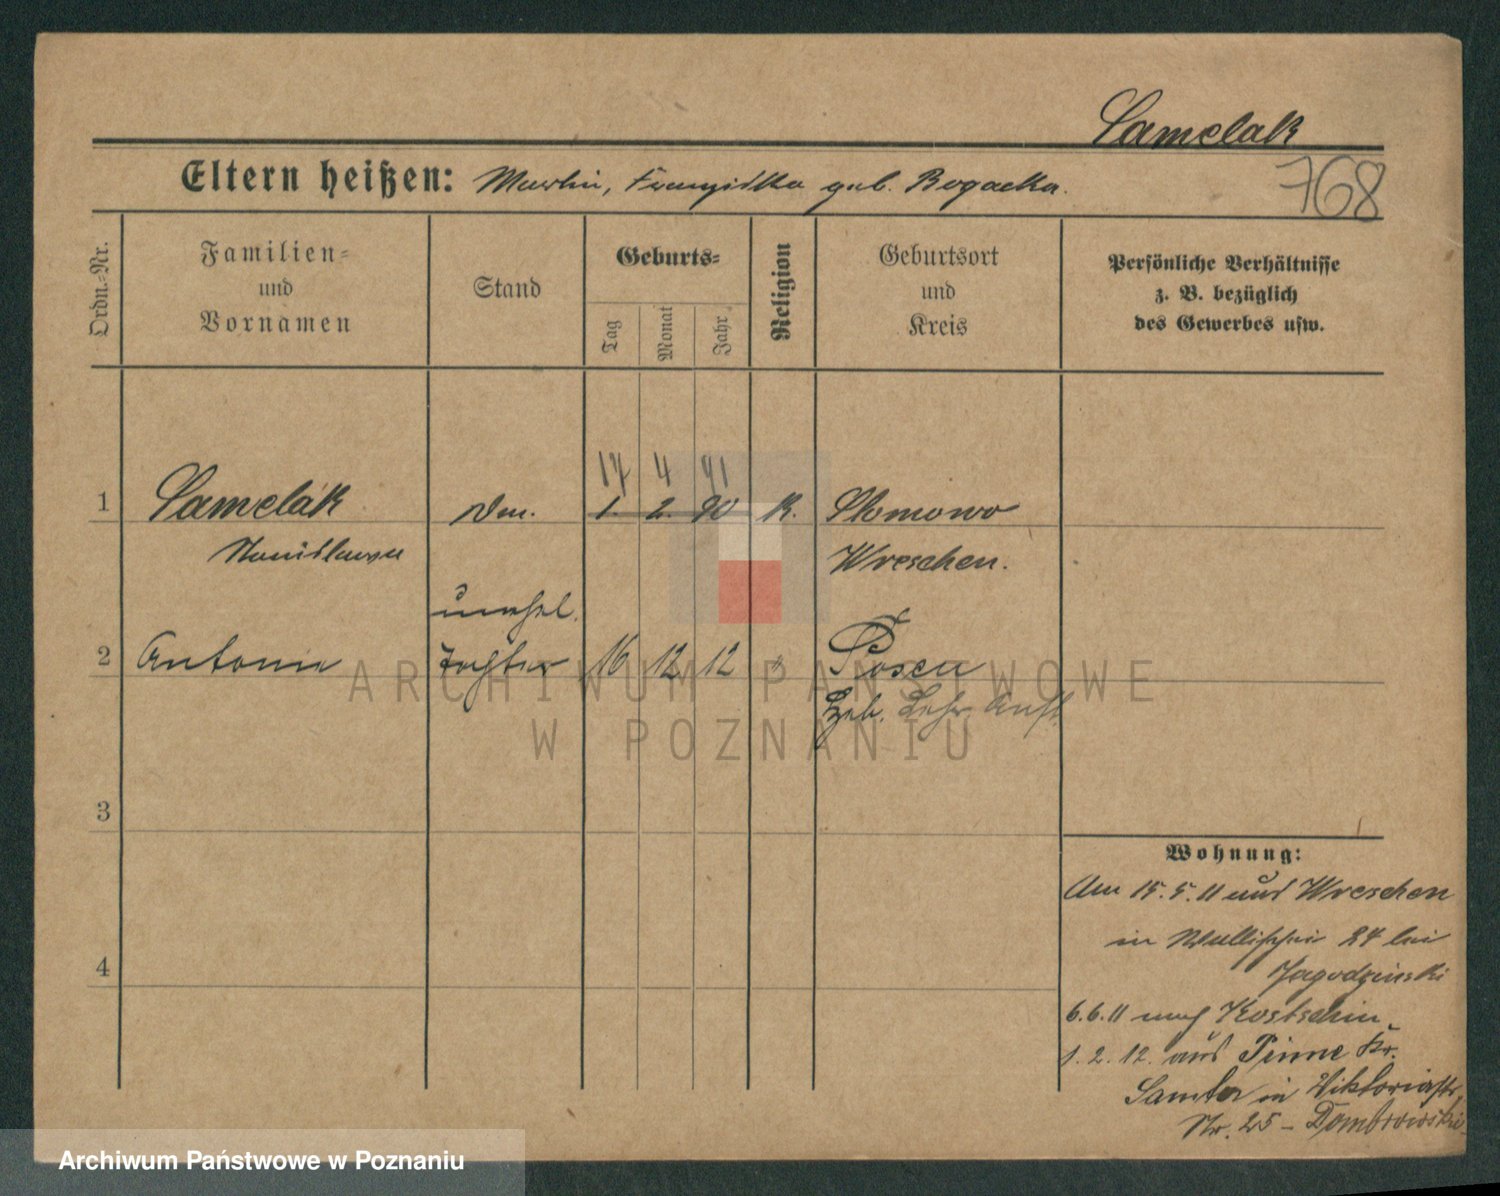 Samelak
768
Eltern heißen: Martin, Franziska geb. Bogacka.
Ordn.-Nr.
Familien-
und
Vornamen
Stand
Geburts-
Tag
Monat
Jahr
Religion
Geburtsort
und
Kreis
Persönliche Verhältnisse
z. B. bezüglich
des Gewerbes usw.
17 4 91
1 Samelak 1. 2. 90 K. Slomowo
Stanislawa Wreschen.
unehel.
2 Antonie Tochter 16 12 12 " Posen
Heb. Lehr Anst.
3
4
Wohnung:
Am 15.5.11 aus Wreschen
in Wallischei 24 bei
Jagodzinski
6.6.11 nach Kostschin
1. 2. 12. aus Pinne Kr.
Samter in Viktoriastr.
Nr. 25 - Dombrowski.
ARCHIWUM PAŃSTWOWE
W POZNANIU
Archiwum Państwowe w Poznaniu